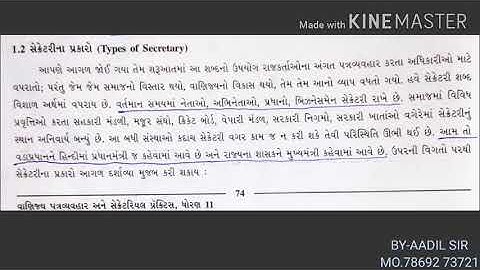 Made with KINEMASTER
1.2 સેક્રેટરીના પ્રકારો (Types of Secretary)
આપણે આગળ જોઈ ગયા તેમ શરૂઆતમાં આ શબ્દનો ઉપયોગ રાજકર્તાઓના અંગત પત્રવ્યવહાર કરતા અધિકારીઓ માટે
વપરાતો; પરંતુ જેમ જેમ સમાજનો વિસ્તાર થયો, વાણિજ્યનો વિકાસ થયો, તેમ તેમ આનો વ્યાપ વધતો ગયો. હવે સેક્રેટરી શબ્દ
વિશાળ અર્થમાં વપરાય છે. વર્તમાન સમયમાં નેતાઓ, અભિનેતાઓ, પ્રધાનો, બિઝનેસમેન સેક્રેટરી રાખે છે. સમાજમાં વિવિધ
પ્રવૃત્તિઓ કરતા સહકારી મંડળી, મજૂર સંઘો, ક્રિકેટ બોર્ડ, વેપારી મંડળ, સરકારી નિગમો, સરકારી ખાતાંઓ વગેરેમાં સેક્રેટરીનું
સ્થાન અનિવાર્ય બન્યું છે. આ બધી સંસ્થાઓ કદાચ સેક્રેટરી વગર કામ જ ન કરી શકે તેવી પરિસ્થિતિ ઊભી થઈ છે. આમ તો
વડાપ્રધાનને હિન્દીમાં પ્રધાનમંત્રી જ કહેવામાં આવે છે અને રાજ્યના શાસકને મુખ્યમંત્રી કહેવામાં આવે છે. ઉપરની વિગતો પરથી
સેક્રેટરીના પ્રકારો આગળ દર્શાવ્યા મુજબ કરી શકાય :
74
વાણિજ્ય પત્રવ્યવહાર અને સેક્રેટરિયલ પ્રેક્ટિસ, ધોરણ 11
BY-AADIL SIR
MO.78692 73721